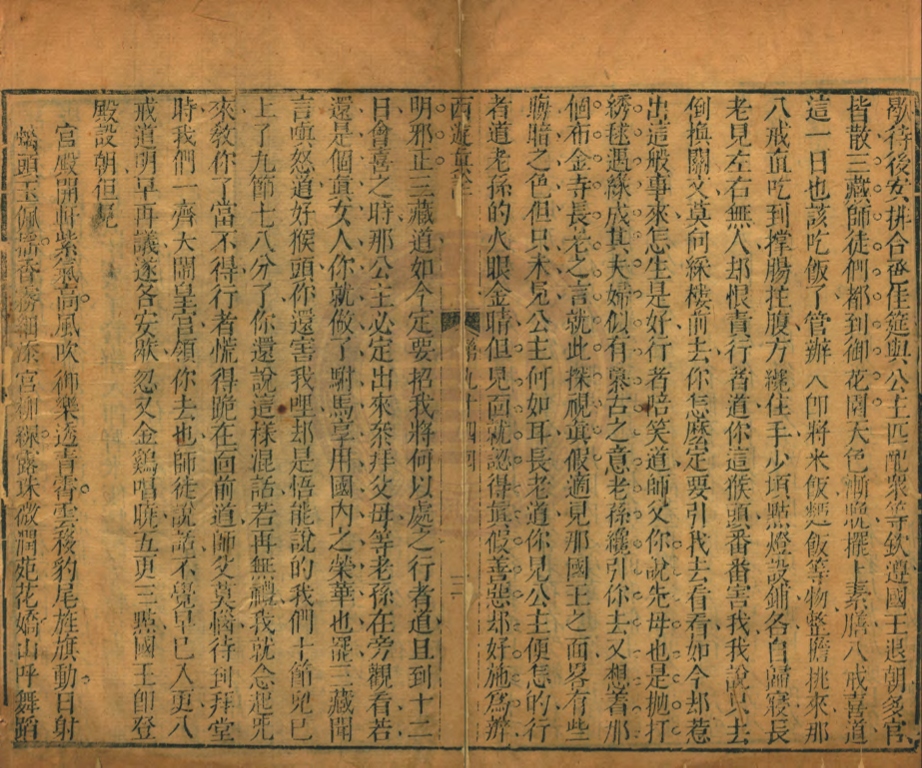 歇待後安排合卺佳筵與公主匹配衆等欽遵國王退朝多官
皆散三藏師徒們都到御花園天色漸晚擺上素膳八戒喜道
這一日也該吃飯了管辦人卽將米飯麵飯等物整擔挑來那
八戒直吃到撑腸拄腹方纔住手少頃點燈設鋪各自歸寢長
老見左右無人却恨責行者道你這猴頭番番害我我說只去
倒換關文莫向綵樓前去你怎麽定要引我去看看如今却惹
出這般事來怎生是好行者陪笑道師父你說先母也是拋打
綉毬遇緣成其夫婦似有慕古之意老孫纔引你去又想着那
個布金寺長老之言就此探視眞假適見那國王之面畧有些
晦暗之色但只未見公主何如耳長老道你見公主便怎的行
者道老孫的火眼金睛但見面就認得眞假善惡却好施爲辨
西遊眞 第九十四回
明邪正三藏道如今定要招我將何以處之行者道且到十二
日會喜之時那公主必定出來叅拜父母等老孫在旁觀看若
還是個眞女人你就做了駙馬享用國內之榮華也罷三藏聞
言嗔怒道好猴頭你還害我哩却是悟能說的我們十節兒已
上了九節七八分了你還說這樣混話若再無禮我就念起咒
來敎你了當不得行者慌得跪在面前道師父莫惱待到拜堂
時我們一齊大鬧皇宮領你去也師徒說話不覺早已入更八
戒道明早再議遂各安歇忽又金鷄唱曉五更三點國王卽登
殿設朝但見
宮殿開軒紫氣高風吹御樂透靑霄雲移豹尾旌旗動日射
螭頭玉佩 香 宮柳綠露珠微潤苑花嬌山呼舞蹈